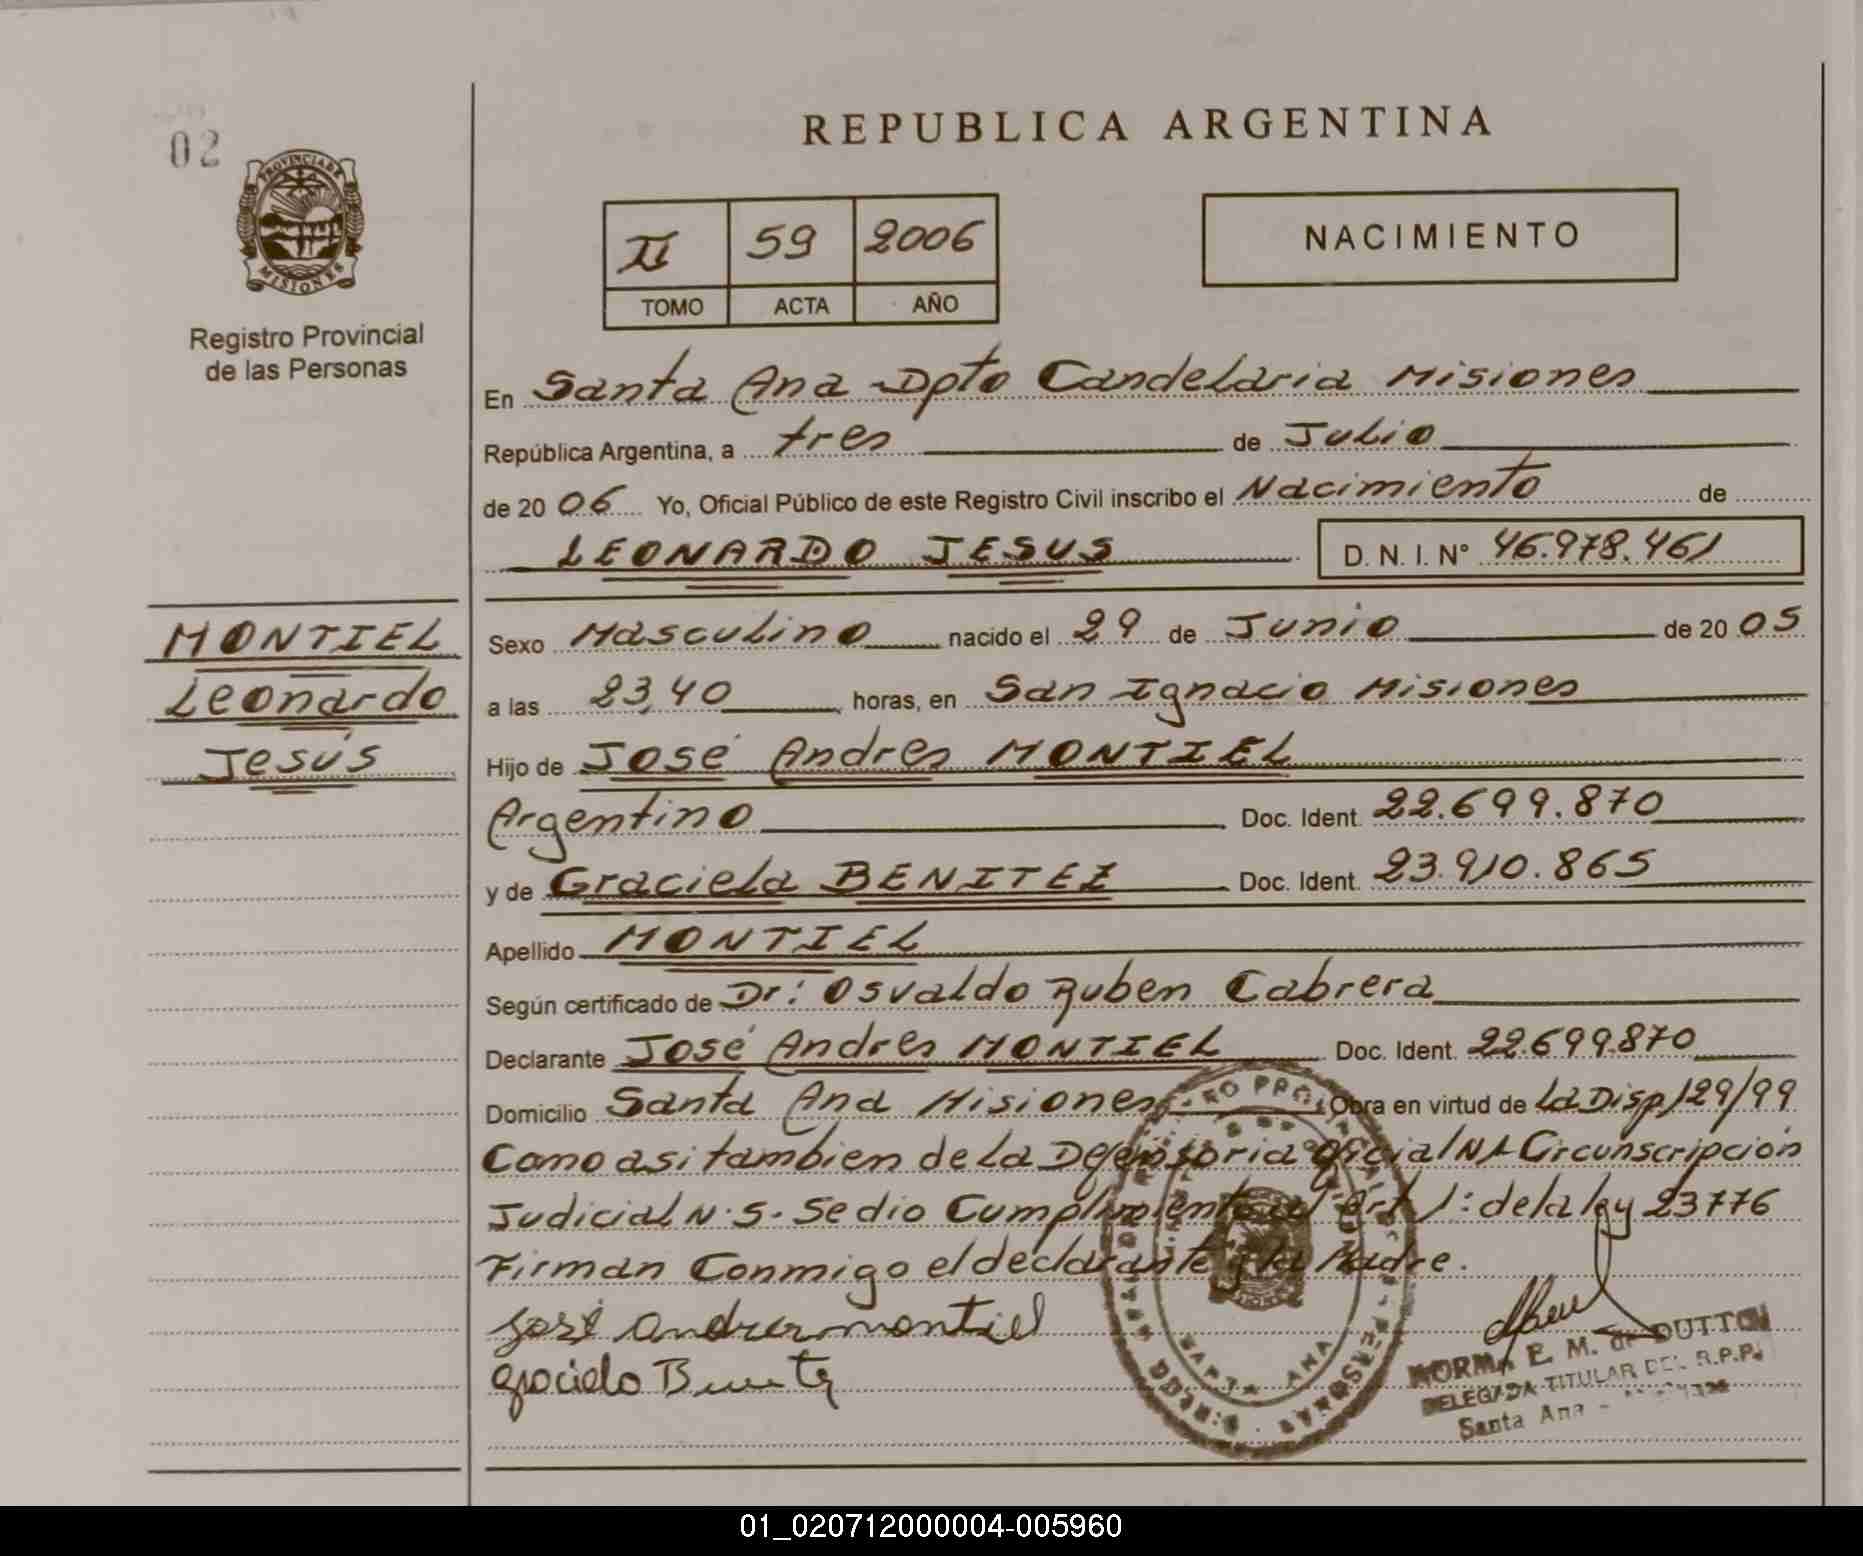 02
PROVINCIA DE
MISIONES
Registro Provincial
de las Personas
REPUBLICA ARGENTINA
II 59 2006
TOMO ACTA AÑO
NACIMIENTO
En Santa Ana Dpto Candelaria Misiones
República Argentina, a tres de Julio
de 2006 Yo, Oficial Público de este Registro Civil inscribo el Nacimiento de
LEONARDO JESUS D. N. I. N° 46.978.461
MONTIEL
Leonardo
Jesús
Sexo Masculino nacido el 29 de Junio de 2005
a las 23,40 horas, en San Ignacio Misiones
Hijo de José Andres MONTIEL
Argentino Doc. Ident. 22.699.870
y de Graciela BENITEZ Doc. Ident. 23.910.865
Apellido MONTIEL
Según certificado de Dr: Osvaldo Ruben Cabrera
Declarante José Andres MONTIEL Doc. Ident. 22.699.870
Domicilio Santa Ana Misiones Obra en virtud de La Disp 129/99
Como asi tambien de la Defensoria oficial N 1 Circunscripción
Judicial N. 5. Se dio Cumplimiento al Art 1: de la ley 23776
Firman Conmigo el declarante y la Madre.
José Andres montiel
graciela Benitez
SANTA ANA
NORMA E. M. de DUTTON
DELEGADA TITULAR DEL R.P.P.
Santa Ana -
01_020712000004-005960